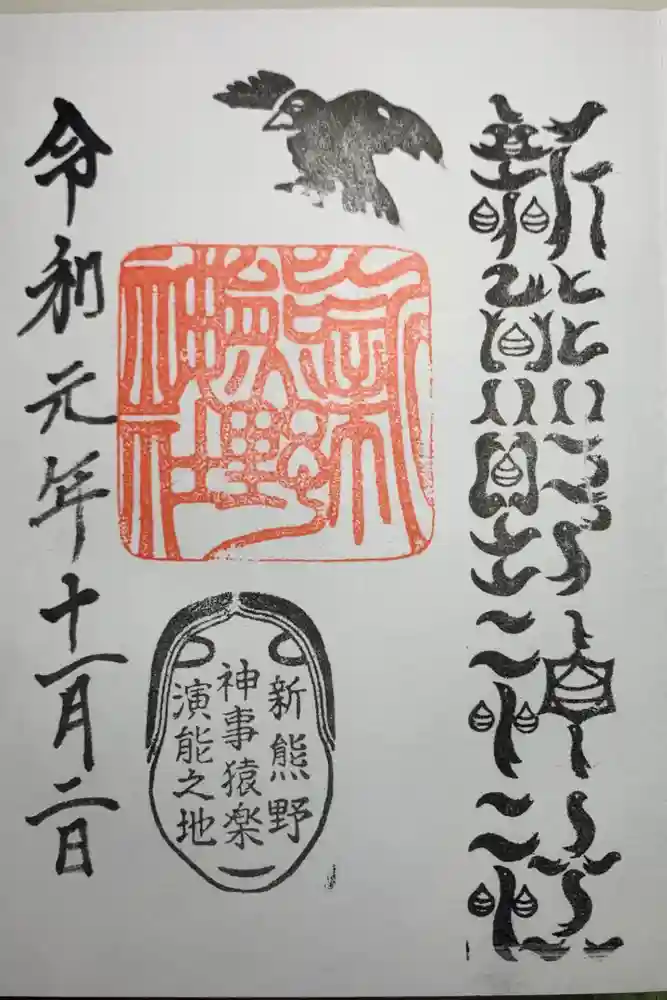 新熊野神社
新
熊野
神社
新熊野
神事猿楽
演能之地
令和元年十一月二日